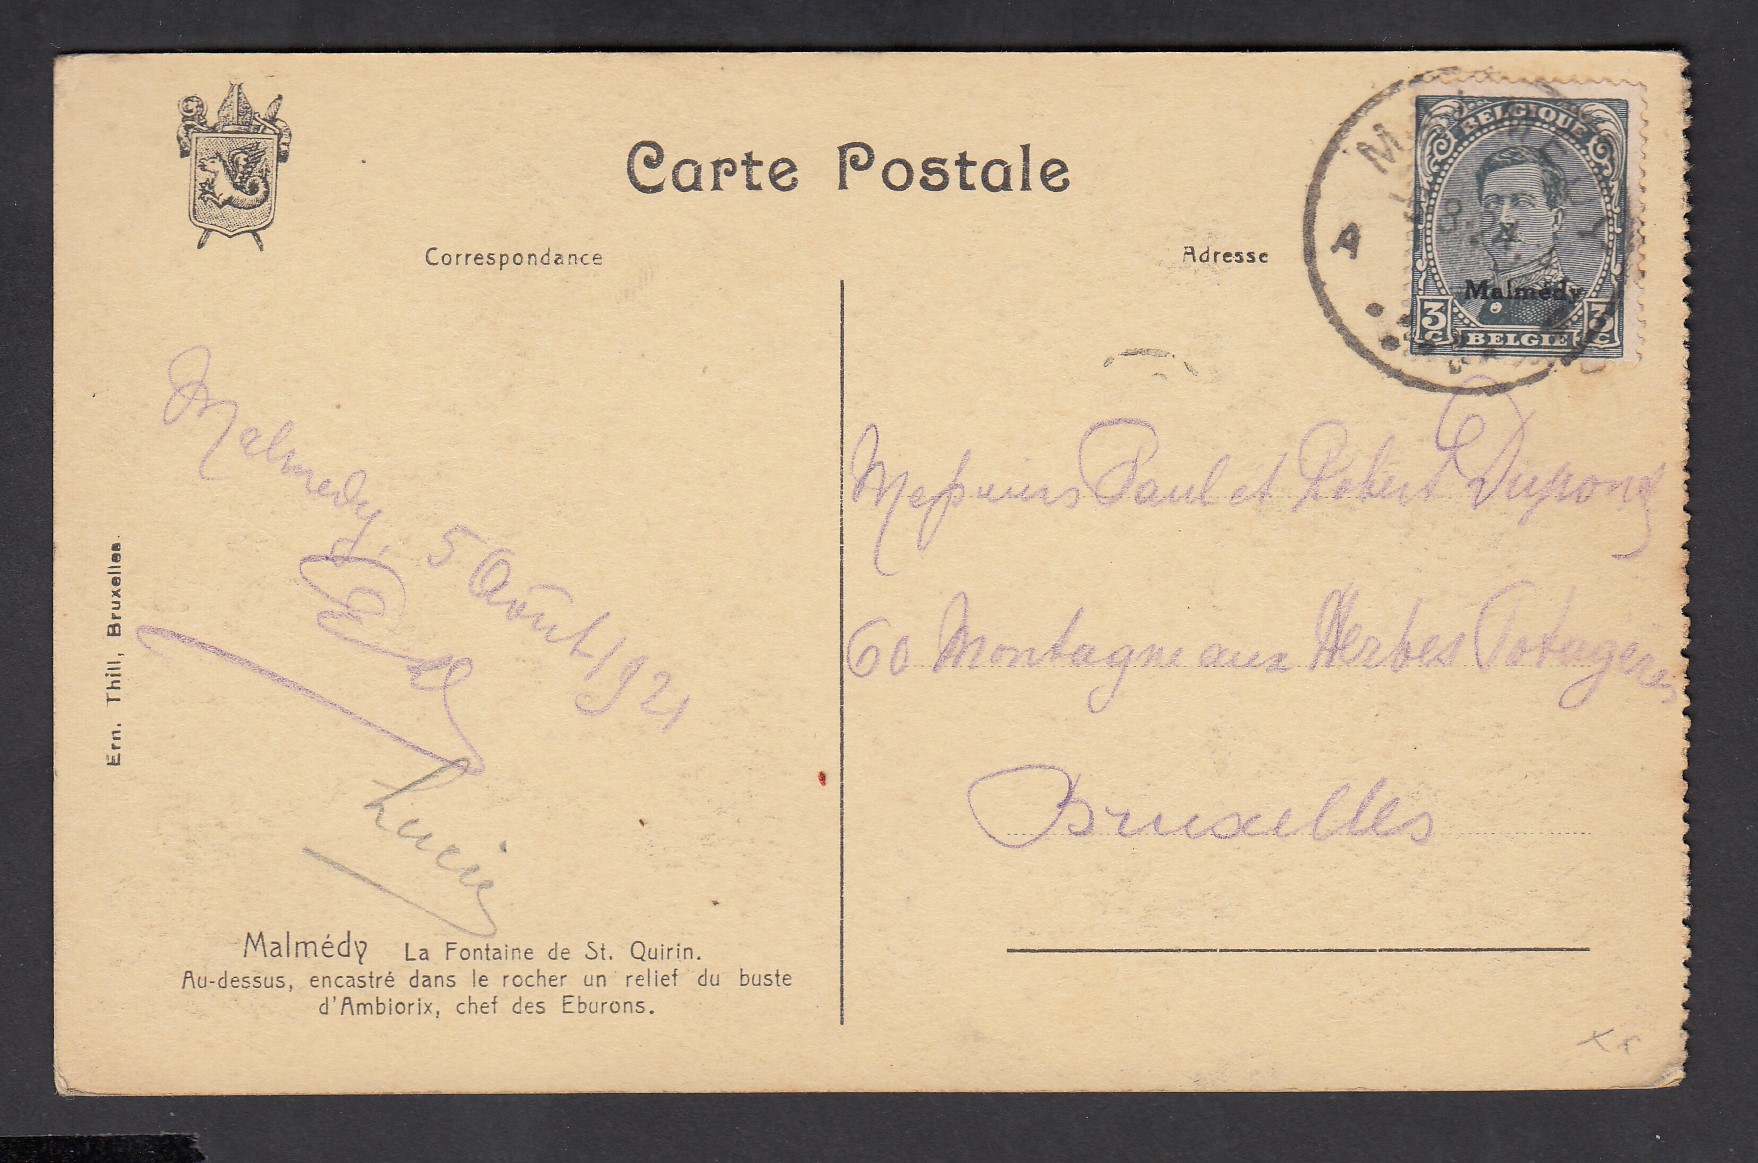 Carte Postale
Correspondance
Adresse
BELGIQUE
Malmédy
3 C
3 C
BELGIË
A
Malmedy, 5 Août 1921
Lucie
Messieurs Paul et Robert Dupont
60 Montagne aux Herbes Potagères
Bruxelles
Ern. Thill, Bruxelles.
Malmédy La Fontaine de St. Quirin.
Au-dessus, encastré dans le rocher un relief du buste
d'Ambiorix, chef des Eburons.